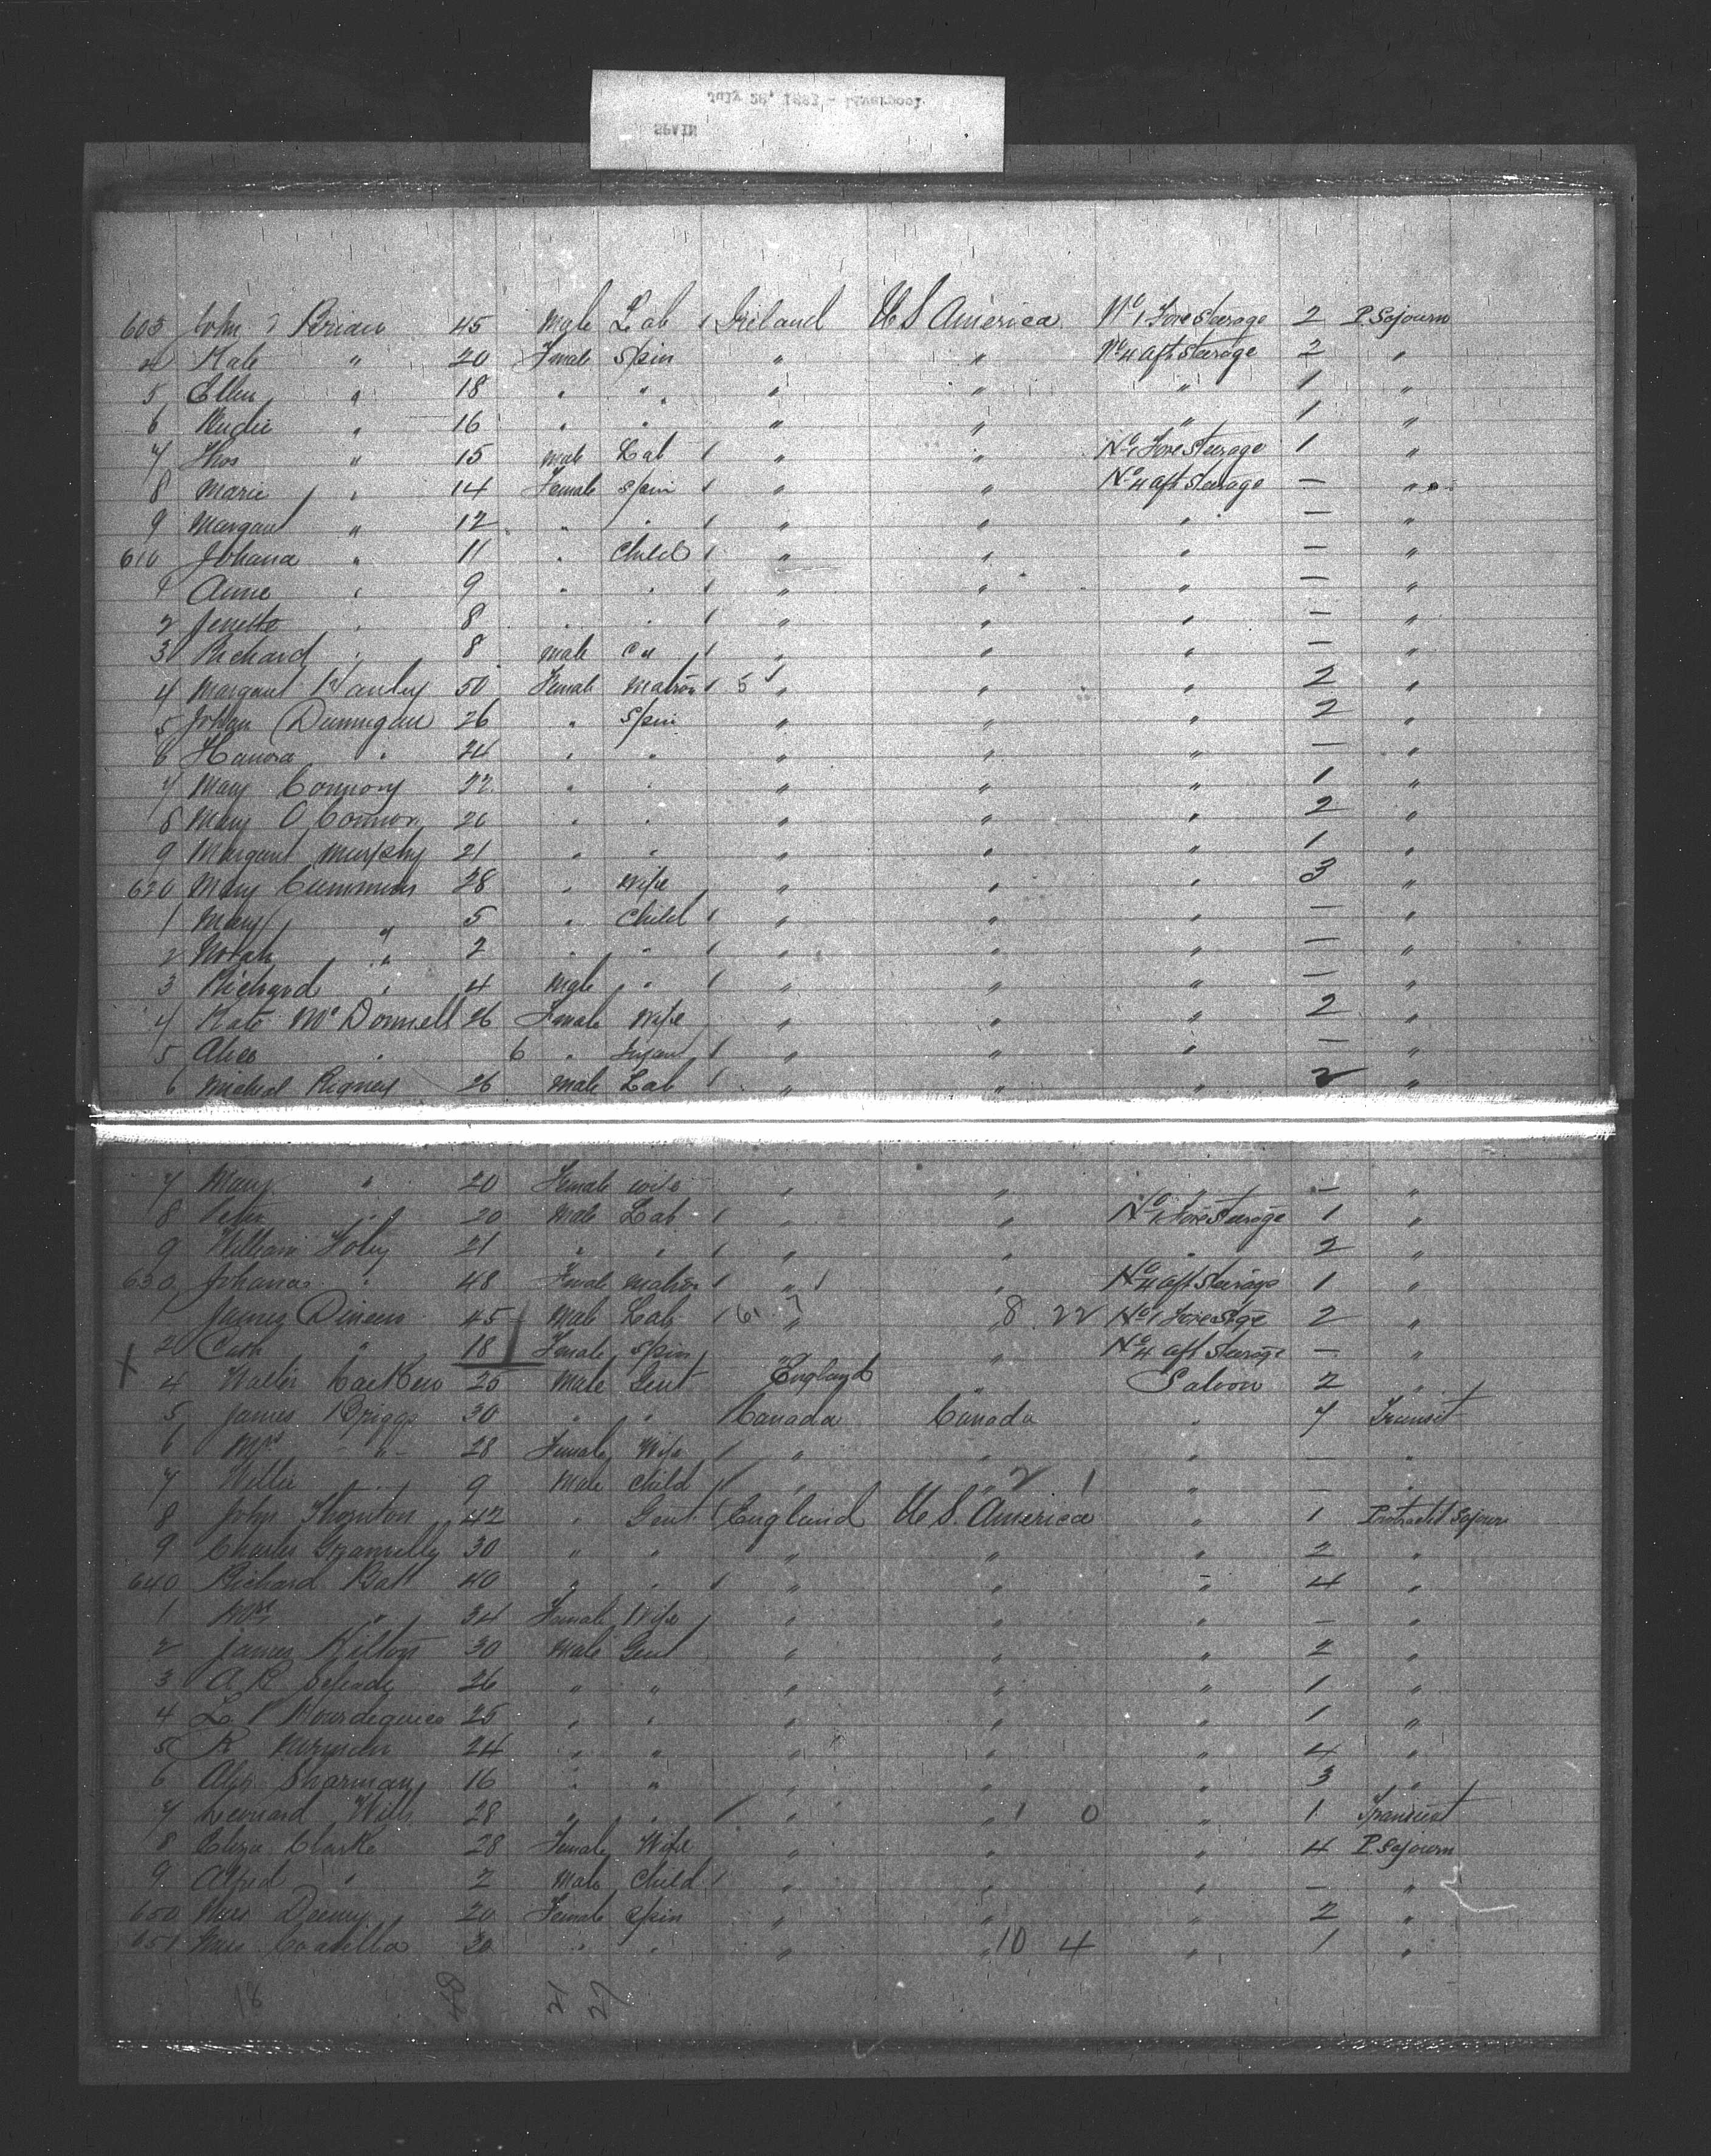 July 26, 1883 - Liverpool.
SPAIN
603 John O Brian 45 Male Lab / Ireland U S America No 1 Fore Steerage 2 P. Sojourn
4 Kate " 20 Female Spin " " No 4 aft steerage 2 "
5 Ellen " 18 " " " " " 1 "
6 16 " " " " " 1 "
7 Thos " 15 male Lab / " " No 1 Fore Steerage 1 "
8 Marie " 14 Female Spin / " " No 4 aft steerage — "
9 Margaret " 12 " " / " " " — "
610 Johana " 11 " Child / " " " — "
1 Anne " 9 " " / " " " — "
2 Jenette " 8 " " / " " " — "
3 Richard " 8 male " / " " " — "
4 Margaret Hanley 50 Female Matron / 5 " " " 2 "
5 Johan Dunnigan 26 " Spin " " " 2 "
6 Hanora " 24 " " " " " — "
7 Mary Connory 22 " " " " " 1 "
8 Mary O Connor 20 " " " " " 2 "
9 Margaret Murphy 21 " " " " " 1 "
620 Mary Cummins 28 " Wife " " " 3 "
1 Mary " 5 " Child / " " " — "
2 Norah " 2 " " / " " " — "
3 Richard " 4 Male " / " " " — "
4 Kate McDonnell 26 Female Wife " " " 2 "
5 Alice " 6 " Infant / " " " — "
6 Micheal Rigney 26 Male Lab / " " " 2 "
7 Mary " 20 Female wife " " " — "
8 Peter " 20 Male Lab / " " No 1 Fore Steerage 1 "
9 William Foley 21 " " / " " " 2 "
630 Johana " 48 Female matron / " 1 No 4 aft Steerage 1 "
1 James Dineen 45 Male Lab / 61 7 " " 8 22 No 1 Fore Stge 2 "
X 2 Cath " 18 Female Spin " " No 4 aft Steerage — "
4 Walter 25 Male Gent England " Saloon 2 "
5 James Briggs 30 " " / Canada Canada " 7 Transit
6 Mrs " 28 Female Wife / " " " — "
7 Willie " 9 Male Child / " " 2 1 " — "
8 John Thornton 42 " Gent / England U S. America " 1 Protracted Sojourn
9 Charles 30 " " " " " 2 "
640 Richard Batt 40 " " / " " " 4 "
1 Mrs " 34 Female Wife " " " — "
2 James Hilton 30 Male Gent " " " 2 "
3 A R 26 " " " " " 1 "
4 25 " " " " " 1 "
5 R 24 " " " " " 4 "
6 Alex Sharman 16 " " " " " 3 "
7 Leonard Wills 28 " " / " " 1 0 " 1 Transient
8 Eliza Clarke 28 Female Wife " " " 4 P. Sojourn
9 Alfred " 2 Male Child / " " " — "
650 Miss 20 Female Spin " " " 2 "
651 Miss 30 " " " " 10 4 " 1 "
18 21 27